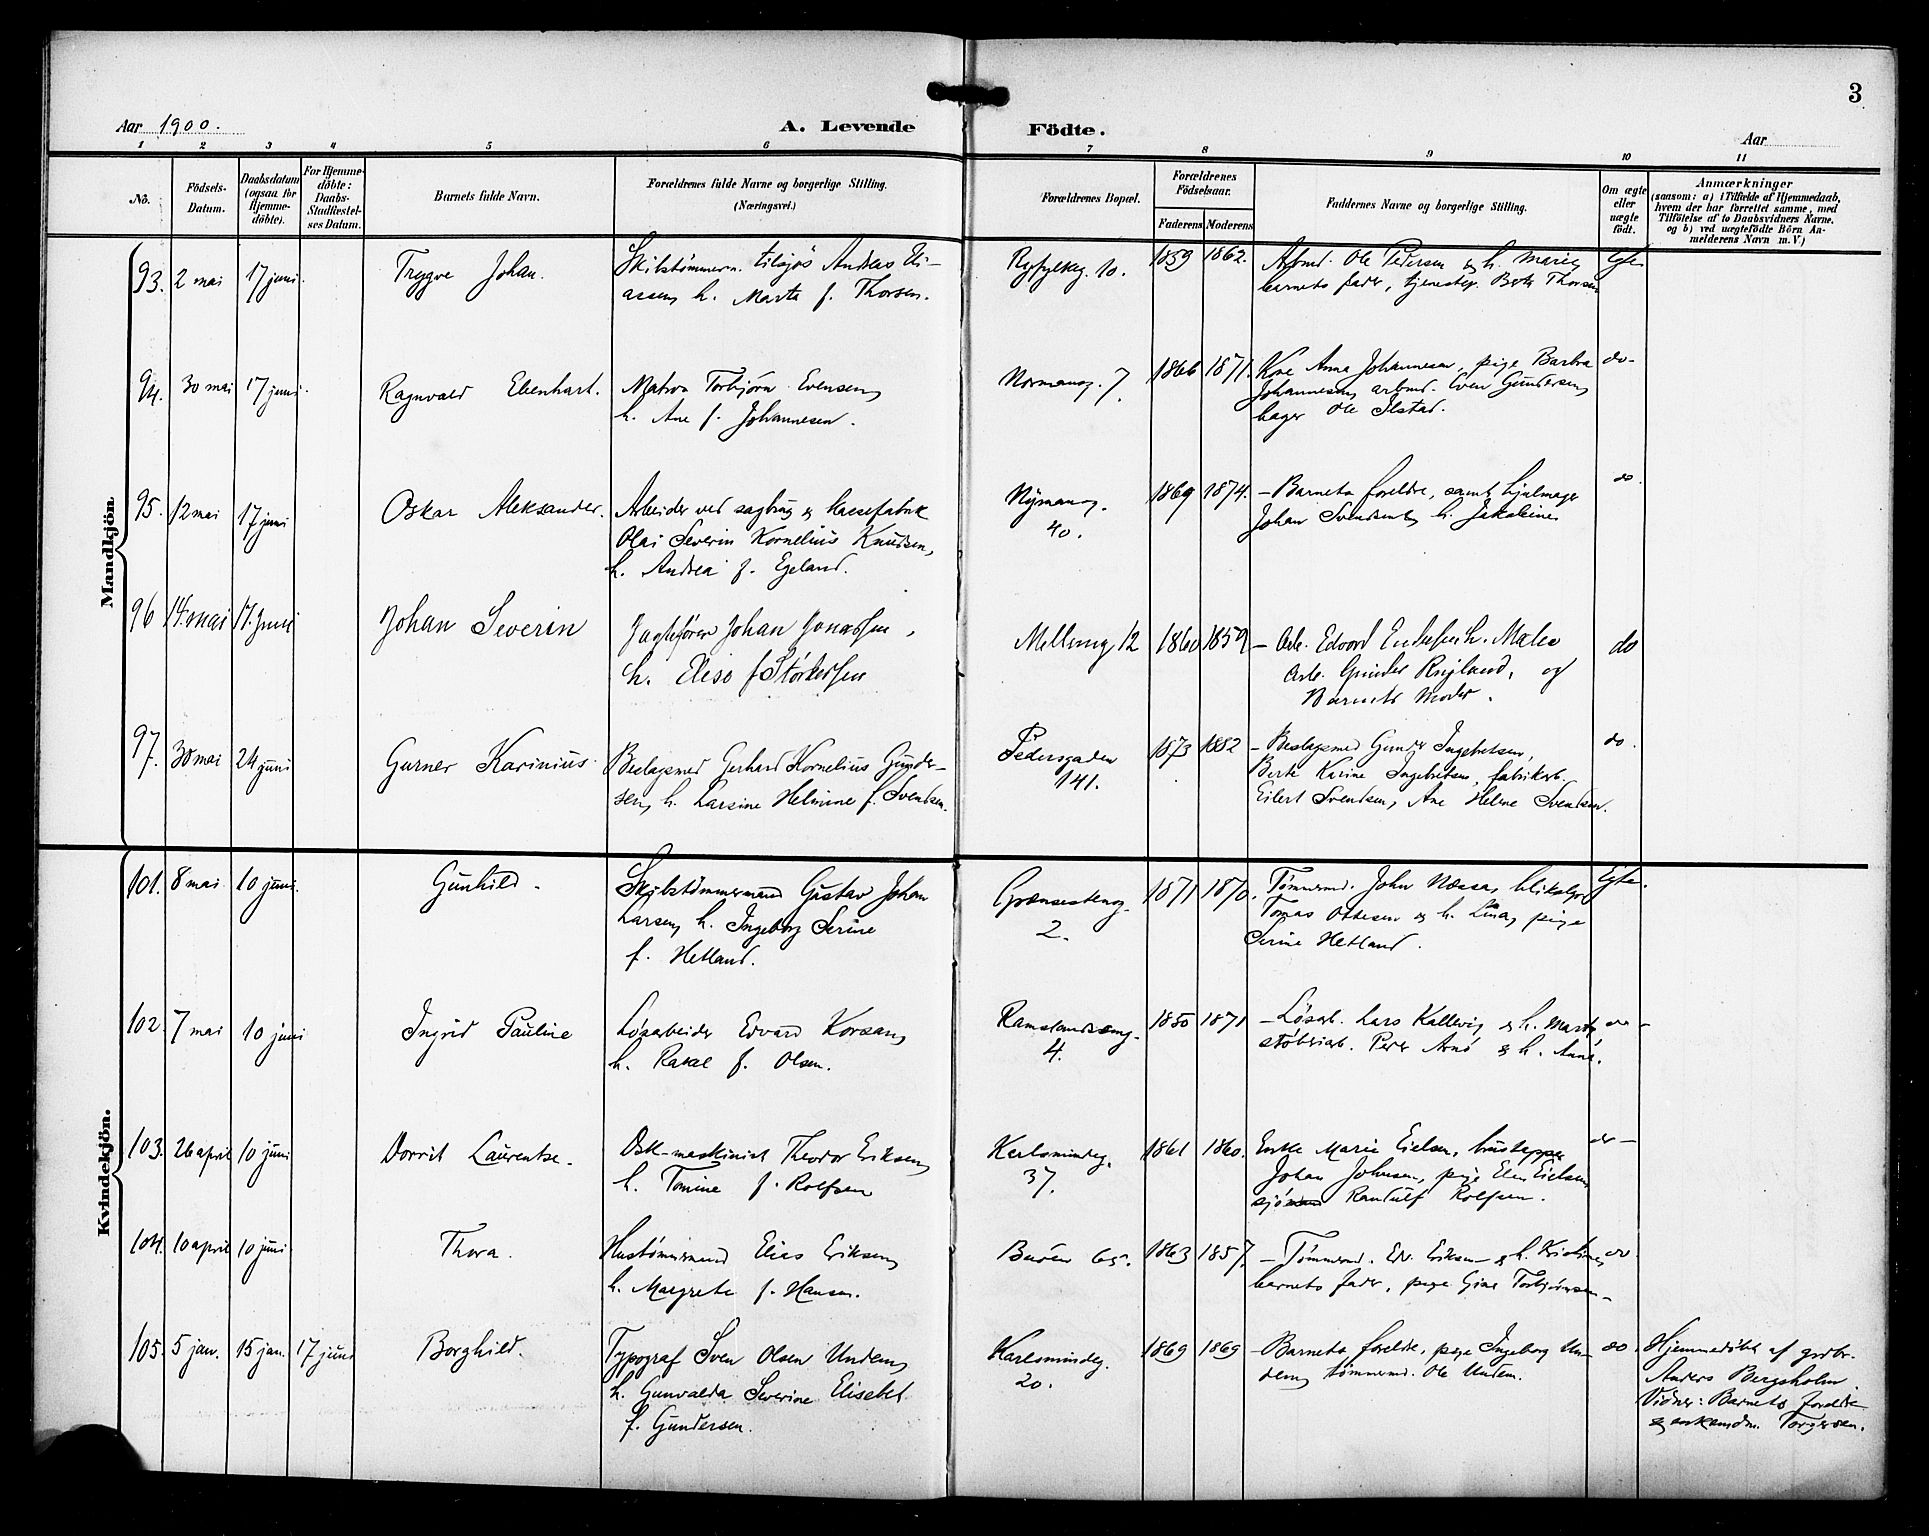 3
Aar 1900.
A. Levende Födte.
Aar
1 2 3 4 5 6 7 8 9 10 11
No.
Födsels-
Datum.
Daabsdatum
(ogsaa for
Hjemme-
döbte).
For Hjemme-
döbte:
Daabs-
Stadfæstel-
ses Datum.
Barnets fulde Navn.
Forældrenes fulde Navne og borgerlige Stilling.
(Næringsvei.)
Forældrenes Bopæl.
Forældrenes
Födselsaar.
Faderens Moderens
Faddernes Navne og borgerlige Stilling.
Om ægte
eller
uægte
födt.
Anmærkninger
(saasom: a) i Tilfælde af Hjemmedaab,
hvem der har forrettet samme, med
Tilföielse af to Daabsvidners Navne,
og b) ved uægtefödte Börn An-
melderens Navn m. V.)
Mandkjön.
93. 2 mai 17 juni. Trygve Johan.
Skibstømmerm. tilsjøs Andreas Eli-
assen, h. Marta f. Thorsen.
Ryfylkeg. 10. 1859 1862.
Arbmd. Ole Pedersen og h. Marie,
barnets fader, tjenestep. Berta Thorsen
Egte.
94. 30 mai 17 juni. Ragnvald Ebenhart.
Matros Torbjørn Evensen,
h. Ane f. Johannesen.
Normansg. 7. 1866 1871.
Kone Anna Johannesen, pige Barbra
Johannesen, arbmd. Even Gundersen,
bager Ole Ilstad.
do-
95. 12 mai 17 juni Oskar Aleksander.
Arbeider ved sagbrug og kassefabrik
Olai Severin Kornelius Knudsen,
h. Andrea f. Egeland.
Nymansg.
40.
1869 1874.
- Barnets foreldre, samt hjulmager
Johan Svendsen og h. Jakobine
do.
96 14. mai 17. Juni Johan Severin
Jagtefører Johan Jonassen,
h. Elise f Størkersen
Mellemg 12 1860 1859
- Arb. Edvard h. Malene
Arb. Gunder og
Barnets Moder.
do
97. 30 mai 24 juni Gurner Karinius.
Beslagsmed Gerhard Kornelius Gunder-
sen, h. Larsine Helmine f. Svendsen.
Pedersgaden
141.
1873 1882
- Beslagsmed Gunder Ingebretsen,
Berte Karine Ingebretsen, fabrikarb.
Eilert Svendsen, Ane Helene Svendsen.
do.
Kvindekjön.
101. 8 mai 10 juni. Gunhild.
Skibstømmermand Gustav Johan
Larsen, h. Ingeborg Serine
f. Hetland.
Grænsesteng.
2.
1871 1870.
Tømmermd. John Næsse, blikslager
Tomas Ottesen og h. Lina, pige
Serine Hetland.
Egte.
102. 7 mai 10 juni Ingrid Pauline
Løsarbeider Edvard Korsan,
h. Rakel f. Olsen.
4.
1850 1871
- Løsarb. Lars Kallevig og h. Marta,
støberiarb. Peder Arnø og h. Anna.
do-
103. 26 april 10 juni Dorrit Laurentse.
Dsk-maskinist Theodor Eriksen,
h. Tomine f. Rolfsen
Karlsmindeg.
37.
1861 1860.
Enke Marie Eielsen,
Johan Johnsen, pige Elen Eielsen,
Randulf Rolfsen.
do-
104. 10 april 10 juni. Thora.
Hustømmermand Elias Eriksen,
h. Margrete f. Hansen.
Buøen 65. 1863 1857.
- Tømmermd. Edv. Eriksen og h. Kristine,
barnets fader, pige Gine Torbjørnsen-
do.
105. 5 jan. 15 jan. 17 juni Borghild.
Typograf Sven Olsen Undem,
h. Gunvalda Severine Elisabet
f. Gundersen.
Karlsmindeg.
20.
1869 1869
- Barnets foreldre, pige Ingeborg Un-
dem, tømmermd. Ole Undem.
do.
Hjemmedøbt af grdbr.
Anders Bergsholm.
Vidner: Barnets foreldre
og enkemdm. Torgersen.